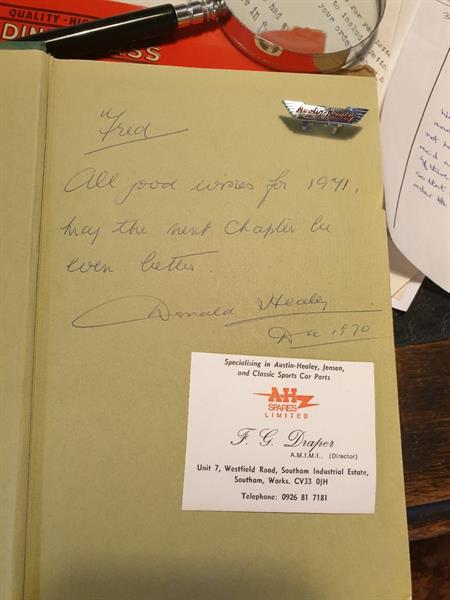 QUALITY - HIG
for you
to includ
your order
Austin-Healey
Fred
All good wishes for 1971,
may the next Chapter be
even better.
Donald Healey
Dec 1970
Specialising in Austin-Healey, Jensen,
and Classic Sports Car Parts
AH
SPARES
LIMITED
F. G. Draper
A.M.I.M.I., (Director)
Unit 7, Westfield Road, Southam Industrial Estate,
Southam, Warks. CV33 0JH
Telephone: 0926 81 7181